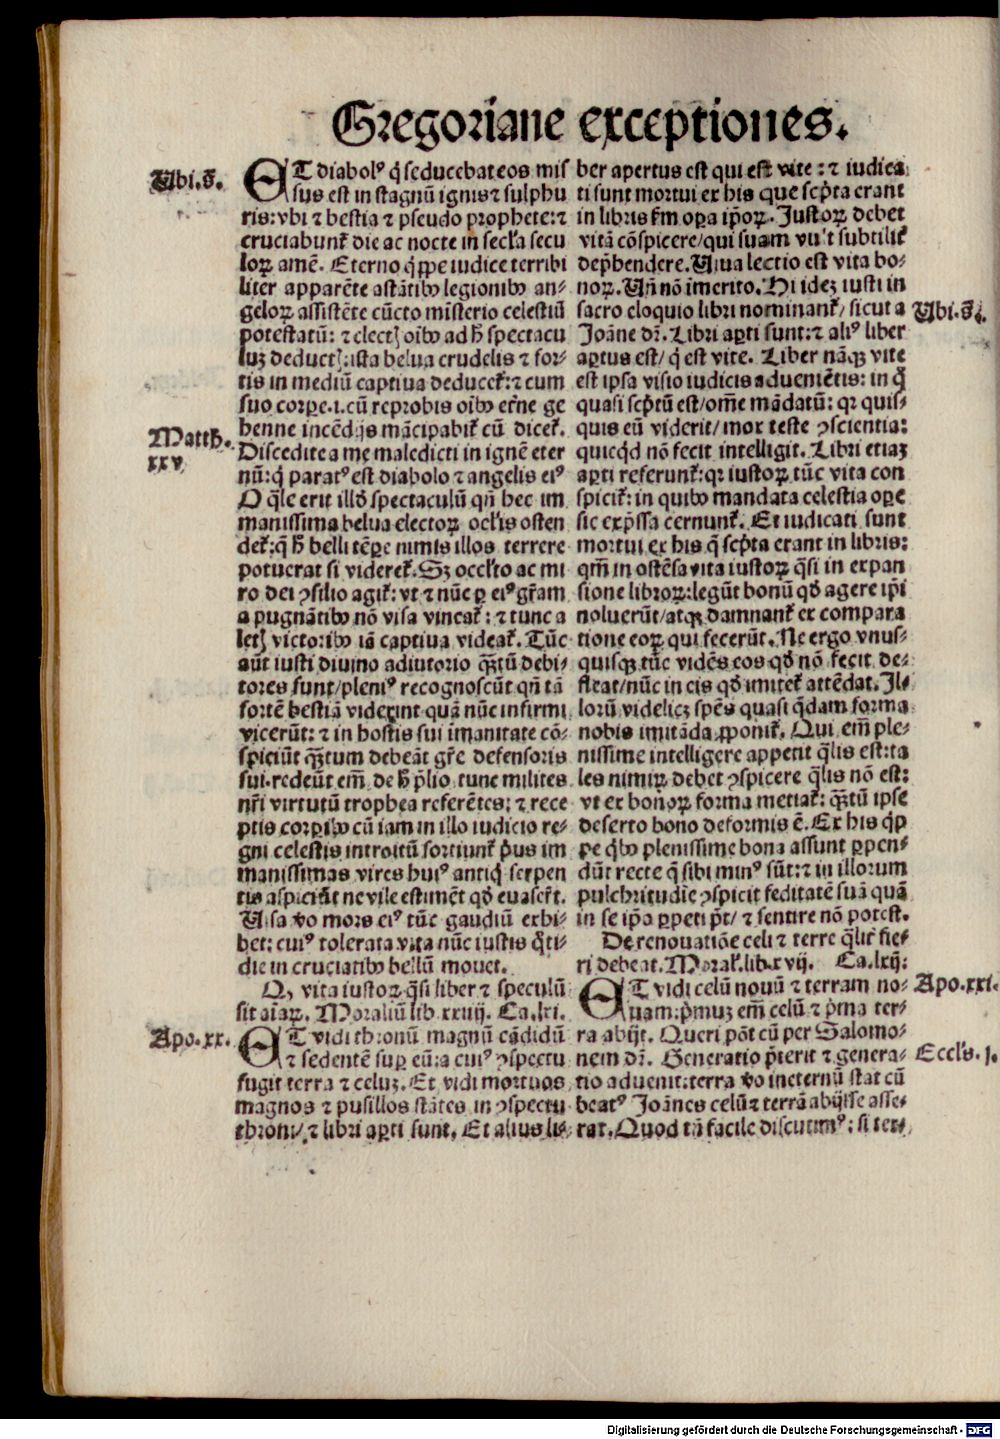 Gregoriane exceptiones.
Ubi.s̄.
ET diabolꝰ q̇ seducebat eos mis
sus est in stagnū ignis ⁊ sulphu
ris: vbi ⁊ bestia ⁊ pseudo prophete: ⁊
cruciabunt᷑ die ac nocte in secl'a secu
loꝝ amē. Eterno q̇ꝑpe iudice terribi
liter apparēte astātibꝰ legionibꝰ an-
geloꝝ assistēte cūcto mīsterio celestiū
potestatū: ⁊ electꝭ oībꝰ ad h̄ spectacu
luꝫ deductꝭ: ista belua crudelis ⁊ for-
tis in mediū captiua deducet᷑: ⁊ cum
suo corꝑe .i. cū reprobis oībꝰ et̄ne ge
Matth.
xxv
henne incēdijs mācipabit᷑ cū dicet᷑.
Discedite a me maledicti in ignē eter
nū: q̇ paratꝰ est diabolo ⁊ angelis eiꝰ
O q̄le erit illd̄ spectaculū qn̄ hec im
manissima belua electoꝝ ocl'is osten
det᷑: q̄ h̄ belli tēꝑe nimis illos terrere
potuerat si videret᷑. Sꝫ occl'to ac mi
ro dei ꝯsilio agit᷑: vt ⁊ nūc ꝑ eiꝰ gr̄am
a pugnātibꝰ nō visa vincat᷑: ⁊ tunc a
letꝭ victoribꝰ iā captiua videat᷑. Tūc
aūt iusti diuino adiutorio q̄ꝫtū debi-
tores sunt/ pleniꝰ recognoscūt qn̄ tā
fortē bestiā viderint quā nūc infirmi
vicerūt: ⁊ in hostis sui imanitate cō-
spiciūt q̄ꝫtum debeāt gr̄e defensoris
sui. redeūt em̄ de h̄ p̄lio tunc milites
nr̄i virtutū trophea referētes: ⁊ rece
ptis corꝑibꝰ cū iam in illo iudicio re-
gni celestis introitū sortiunt᷑ p̄us im
manissimas vires huiꝰ antiq̇ serpen
tis aspiciūt ne vile estimēt qd̄ euaser̄t.
Uisa ꝟo mors eiꝰ tūc gaudiū exhi-
bet: cuiꝰ tolerata vita nūc iustis q̄ti-
die in cruciatibꝰ bellū mouet.
Qꝫ vita iustoꝝ q̄si liber ⁊ speculū
sit aīaꝝ. Moraliū lib. xxiiij. Ca. lxi.
Apo.xx.
ET vidi thronū magnū cādidū
⁊ sedentē suꝑ eū: a cuiꝰ ꝯspectu
fugit terra ⁊ celuꝫ. Et vidi mortuos
magnos ⁊ pusillos stātes in ꝯspectu
throni/ ⁊ libri aꝑti sunt. Et alius li-
ber apertus est qui est vite: ⁊ iudica
ti sunt mortui ex his que scp̄ta erant
in libris fm̄ oꝑa ip̄oꝝ. Iustoꝝ debet
vitā cōspicere/ qui suam vu't subtilit᷑
dep̄hendere. Uiua lectio est vita bo-
noꝝ. Un̄ nō īmerito. Hi idēꝫ iusti in
Ubi.s̄.
sacro eloquio libri nominant᷑/ sicut a
Joāne dr̄. Libri aꝑti sunt: ⁊ aliꝰ liber
aꝑtus est/ q̇ est vite. Liber nāqꝫ vite
est ipsa visio iudicis aduenietis: in q̇
quasi scp̄tū est/ om̄e mādatū: qr quis-
quis eū viderit/ mox teste ꝯscientia:
quicq̇d nō fecit intelligit. Libri etiaꝫ
aꝑti referunt᷑: qr iustoꝝ tūc vita con
spicit᷑: in quibꝰ mandata celestia oꝑe
sic exp̄ssa cernunt᷑. Et iudicati sunt
mortui ex his q̄ scp̄ta erant in libris:
qm̄ in ostēsa vita iustoꝝ q̄si in expan
sione libroꝝ: legūt bonū qd̄ agere ip̄i
noluerūt/ atqꝫ damnant᷑ ex compara
tione eoꝝ qui fecerūt. Ne ergo vnus-
quisqꝫ tūc vidēs eos qd̄ nō fecit de-
fleat/ nūc in eis qd̄ imitet᷑ attēdat. Il-
lorū videlicꝫ spēs quasi q̄dam forma
nobis imitāda ꝓponit᷑. Qui em̄ ple-
nissime intelligere appetit q̄lis est: ta
les nimiꝝ debet ꝯspicere q̄lis nō est:
vt ex bonoꝝ forma metiat᷑: q̄ꝫtū ipse
deserto bono deformis ē. Ex his q̇ꝑ
pe q̇bꝰ plenissime bona assunt ꝑpen-
dūt recte q̄ sibi minꝰ sūt: ⁊ in illorum
pulchritudīe ꝯspicit feditatē suā quā
in se ip̄a ꝑpeti p̄t/ ⁊ sentire nō potest.
De renouatiōe celi ⁊ terre q̄lit᷑ fie-
ri debeat. Moral᷑. lib. xvij. Ca. lxij:
Apo.xxi.
ET vidi celū nouū ⁊ terram no-
uam: p̄muꝫ em̄ celū ⁊ p̄ma ter-
ra abijt. Queri pōt cū per Salomo-
Eccl's.j.
nem dr̄. Generatio p̄terit ⁊ genera-
tio aduenit: terra ꝟo in eternū stat cū
beatꝰ Joānes celū ⁊ terrā abijsse asse-
rat. Quod tā facile discutimꝰ: si ter-
Digitalisierung gefördert durch die Deutsche Forschungsgemeinschaft - DFG